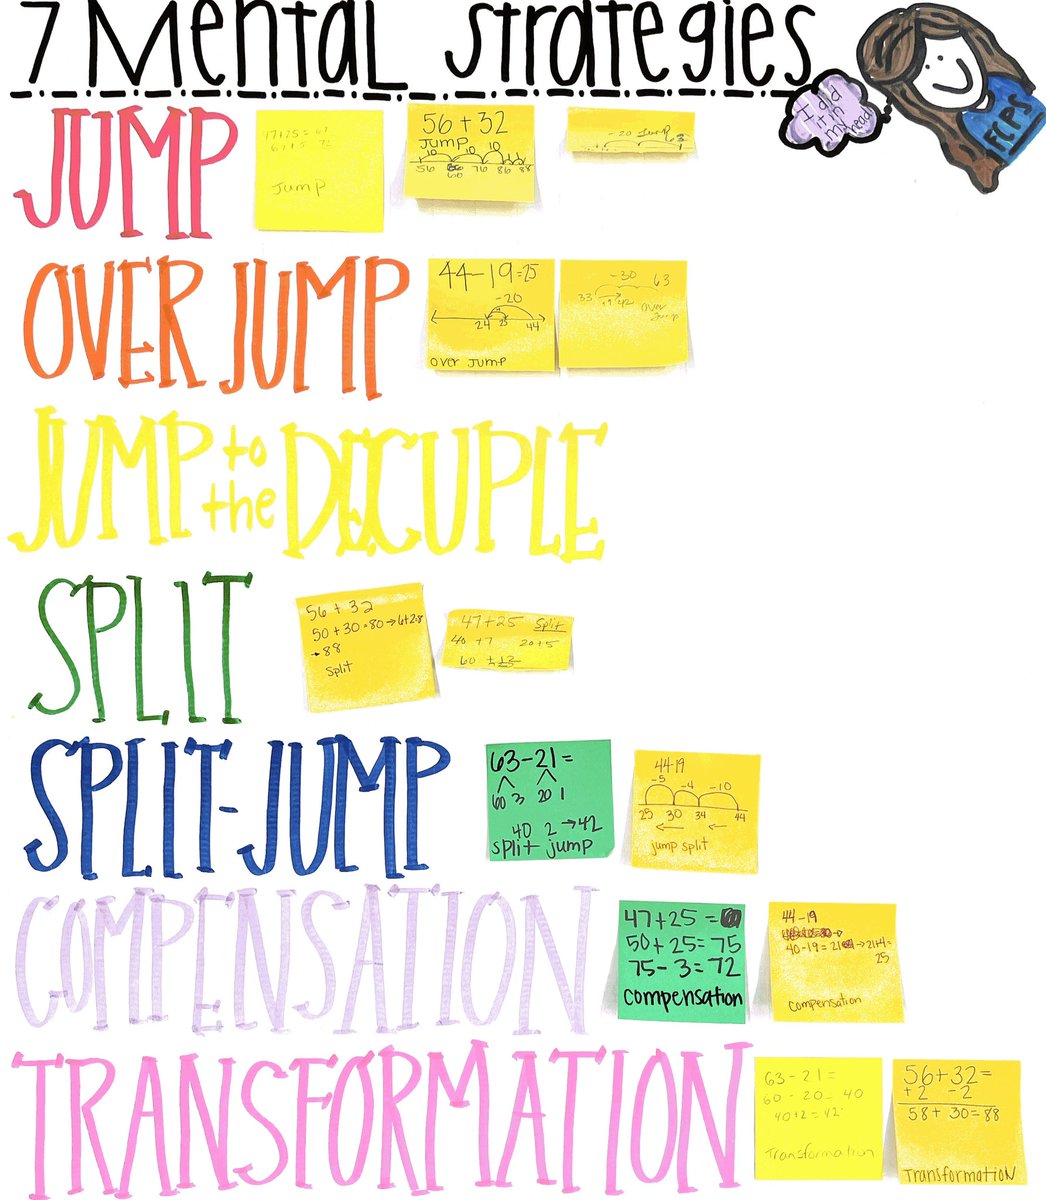 7 Mental Strategies
I did
it in
my head
FCPS
JUMP
47+25 = 67
67+5 72
Jump
56 + 32
Jump
10 10 10
56 66 76 86 88
60
-20 Jump
63
OVER JUMP
44-19=25
-20
24 25 44
over jump
-30
63
33 +9 42
over
Jump
JUMP to the DECUPLE
SPLIT
56 + 32
50 + 30 = 80 → 6+2=8
→ 88
Split
47+25 Split
40 +7 20+5
60 + 12
SPLIT-JUMP
63-21=
60 3 20 1
40 2 → 42
split jump
44-19
-5 -4 -10
25 30 34 44
jump split
COMPENSATION
47+25 =
50+25=75
75-3=72
compensation
44-19
40-19=21 → 21+4=
25
compensation
TRANSFORMATION
63-21=
60-20= 40
40+2=42
Transformation
56+32=
+2 -2
58+ 30=88
TransformatioN